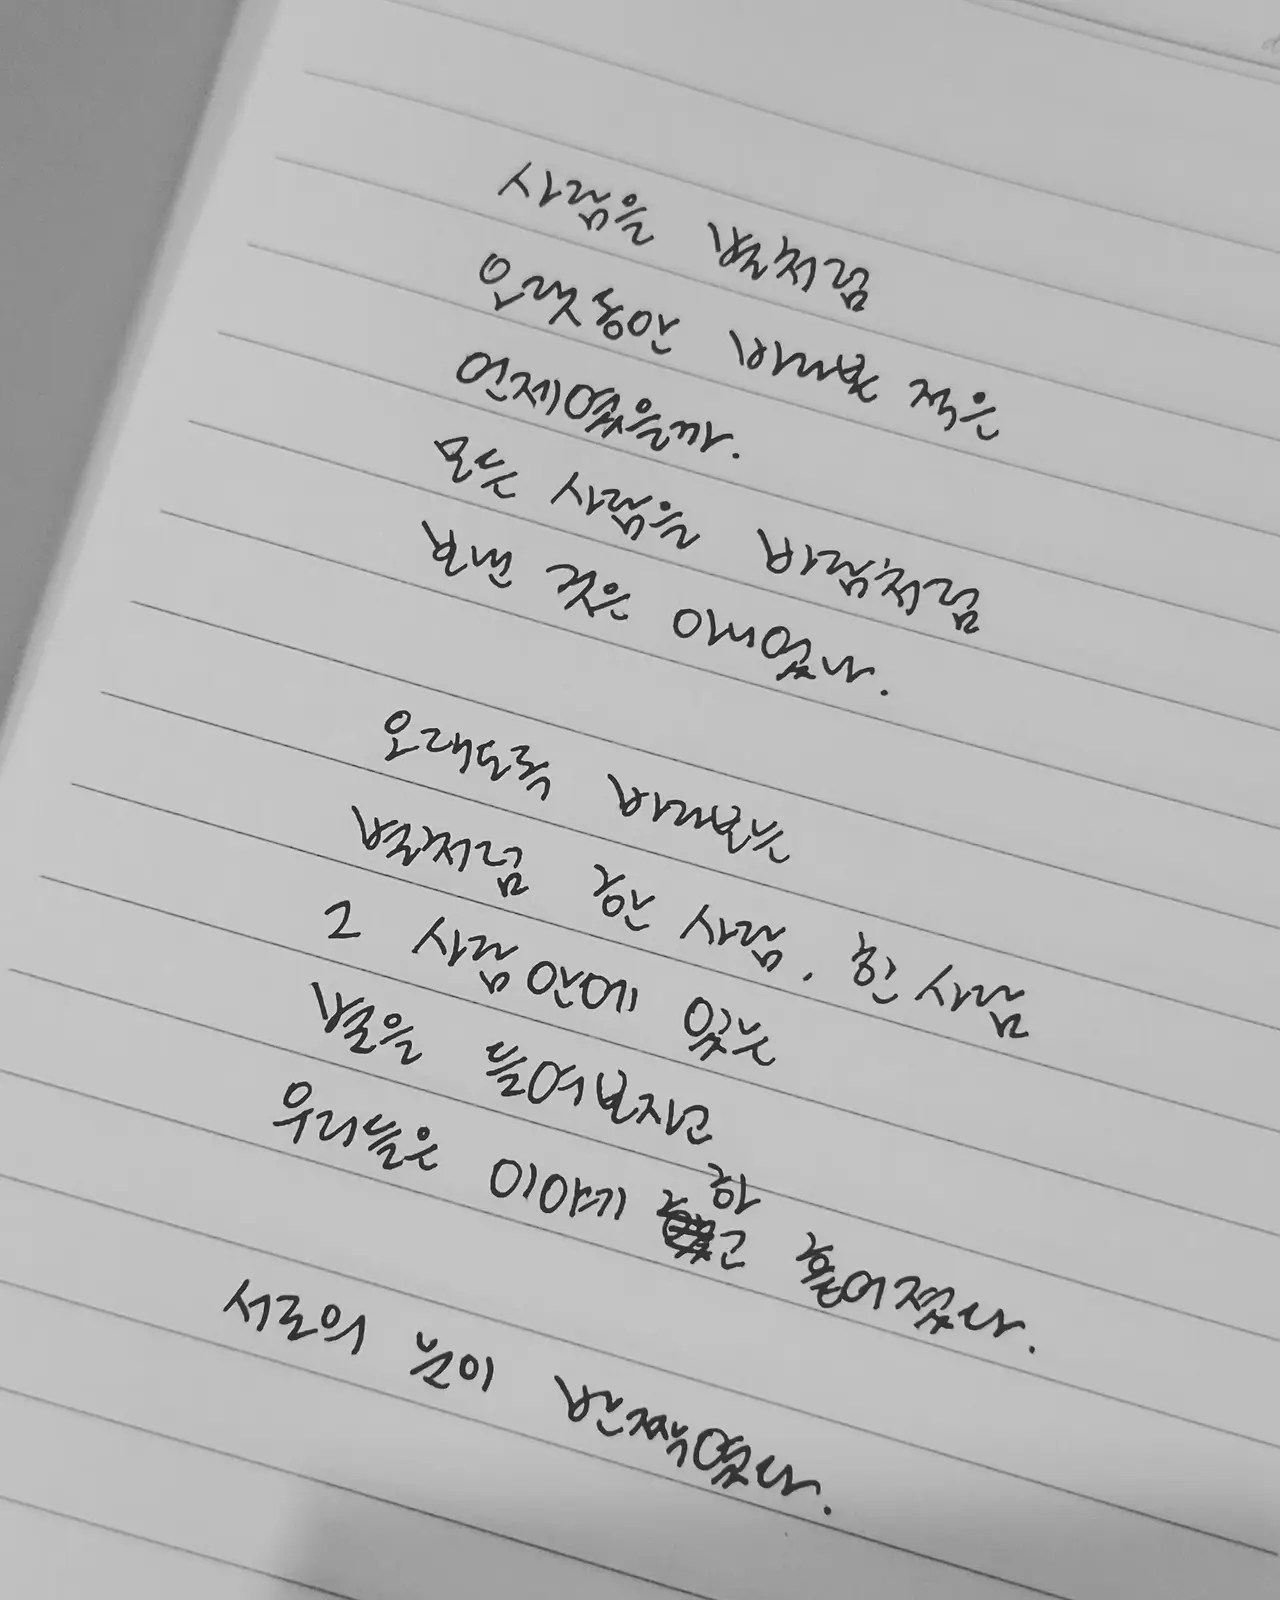 사람을 별처럼
오랫동안 바라본 적은
언제였을까.
모든 사람을 바람처럼
보낸 것은 아니었나.
오래도록 바라보는
별처럼 한 사람, 한 사람
그 사람 안에 있는
별을 들여보자고
우리들은 이야기 하고 흩어졌다.
서로의 눈이 반짝였다.